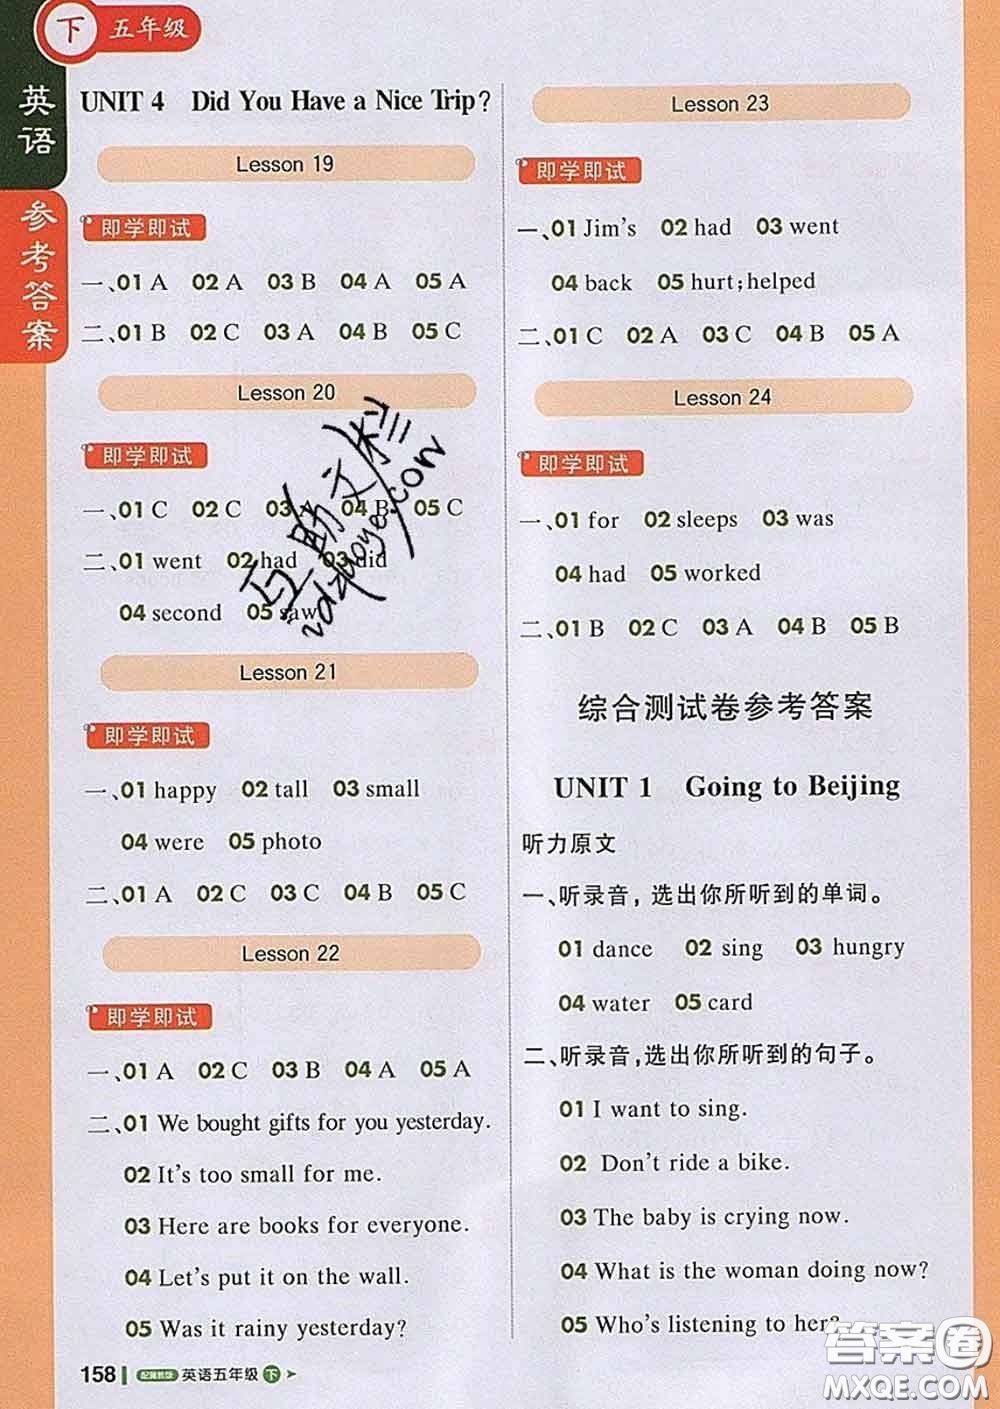 下 五年级
英语
参考答案
UNIT 4 Did You Have a Nice Trip?
Lesson 19
即学即试
一、01 A 02 A 03 B 04 A 05 A
二、01 B 02 C 03 A 04 B 05 C
Lesson 20
即学即试
一、01 C 02 C 03 A 04 B 05 C
二、01 went 02 had 03 did
04 second 05 saw
Lesson 21
即学即试
一、01 happy 02 tall 03 small
04 were 05 photo
二、01 A 02 C 03 C 04 B 05 C
Lesson 22
即学即试
一、01 A 02 C 03 B 04 A 05 A
二、01 We bought gifts for you yesterday.
02 It's too small for me.
03 Here are books for everyone.
04 Let's put it on the wall.
05 Was it rainy yesterday?
158 配冀教版 英语五年级 下
Lesson 23
即学即试
一、01 Jim's 02 had 03 went
04 back 05 hurt;helped
二、01 C 02 A 03 B 04 B 05 A
Lesson 24
即学即试
一、01 for 02 sleeps 03 was
04 had 05 worked
二、01 B 02 C 03 A 04 B 05 B
综合测试卷参考答案
UNIT 1 Going to Beijing
听力原文
一、听录音，选出你所听到的单词。
01 dance 02 sing 03 hungry
04 water 05 card
二、听录音，选出你所听到的句子。
01 I want to sing.
02 Don't ride a bike.
03 The baby is crying now.
04 What is the woman doing now?
05 Who's listening to her?
答案圈
MXQE.COM